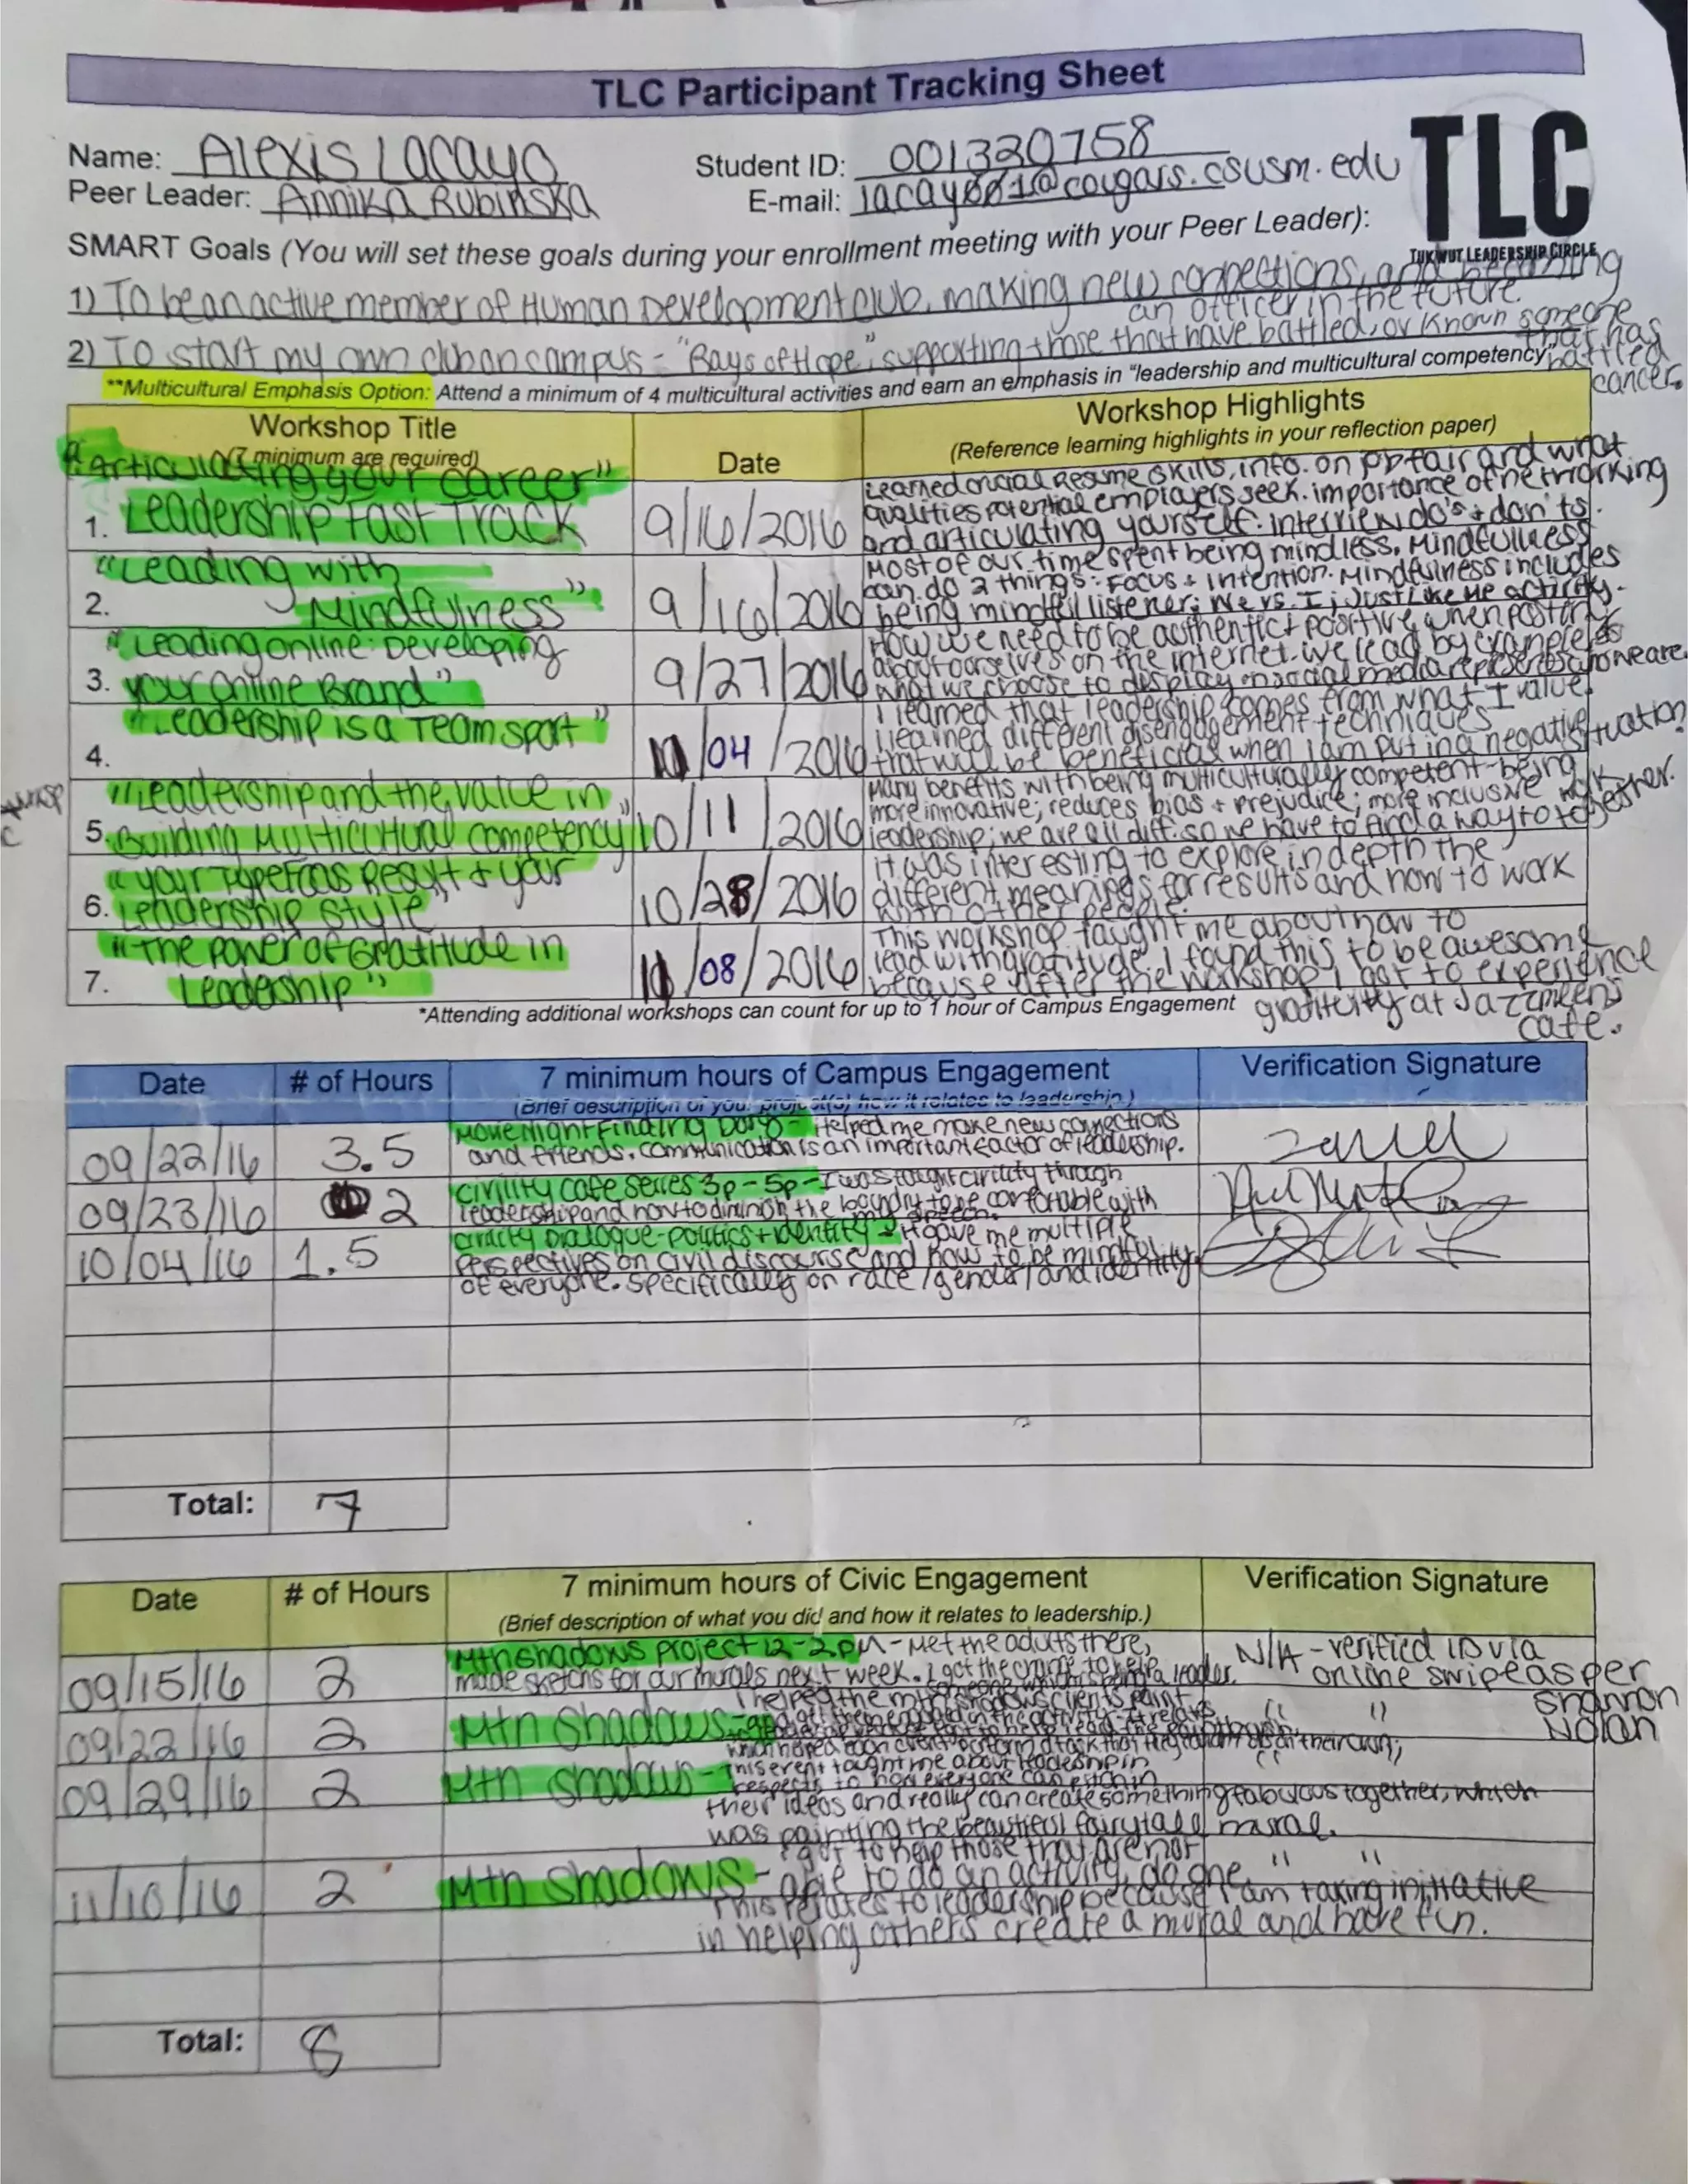 TLC Participant Tracking Sheet
Name: Alexis Lacayo
Student ID: 001320758
Peer Leader: Annika Rubinska
E-mail: lacay001@cougars.csusm.edu
TLC
TUKWUT LEADERSHIP CIRCLE
SMART Goals (You will set these goals during your enrollment meeting with your Peer Leader):
1) To be an active member of Human Development club, making new connections, and becoming
an officer in the future.
2) To start my own club on campus - "Rays of Hope", supporting those that have battled, or known someone
that has
battled
cancer.
**Multicultural Emphasis Option: Attend a minimum of 4 multicultural activities and earn an emphasis in "leadership and multicultural competency"
Workshop Title
(7 minimum are required)
Date
Workshop Highlights
(Reference learning highlights in your reflection paper)
"Articulating your career"
1. Leadership Fast Track
9/16/2016
Learned crucial Resume skills, info. on job fair and what
qualities potential employers seek. importance of networking
and articulating yourself. Interview do's + don'ts.
"Leading with
2. Mindfulness"
9/16/2016
Most of our time spent being mindless. Mindfullness
can do 2 things: Focus + intention. Mindfulness includes
being mindful listener; We vs. I; Just Like Me activity.
"Leading online: Developing
3. your online Brand"
9/27/2016
How we need to be authentic + positive when posting
about ourselves on the internet. we lead by example
what we choose to display on social media represents who we are.
"Leadership is a Team sport"
4.
/04/2016
I learned that leadership comes from what I value.
I learned different disengagement techniques
that will be beneficial when I am put in a negative situation.
"Leadership and the value in
5. Building Multicultural competency"
10/11/2016
Many benefits with being multiculturally competent-being
more innovative; reduces bias + prejudice; more inclusive
leadership; we are all diff. so we have to find a way to work together.
"your Typefocus Result + your
6. Leadership style"
10/28/2016
it was interesting to explore in depth the
different meanings for results and how to work
with other people.
"The power of Gratitude in
7. Leadership"
11/08/2016
This workshop taught me about how to
lead with gratitude. I found this to be awesome
because after the workshop, I got to experience
at Jazzmeens
cafe.
*Attending additional workshops can count for up to 1 hour of Campus Engagement
Date
# of Hours
7 minimum hours of Campus Engagement
(Brief description of your project(s) how it relates to leadership.)
Verification Signature
09/22/16
3.5
Movie Night Finding Dory - Helped me make new connections
and friends. communication is an important factor of leadership.
09/23/16
2
Civility cafe series 3p-5p - I was taught civility through
leadership and how to diminish the boundry to be comfortable with
my speech.
10/04/16
1.5
Dialogue - politics + identity - It gave me multiple
perspectives on civil discourse and how to be mindful
of everyone. Specifically on race/gender/and identity.
Total: 7
Date
# of Hours
7 minimum hours of Civic Engagement
(Brief description of what you did and how it relates to leadership.)
Verification Signature
09/15/16
2
Mtn shadows project 12-2pm - Met the adults there,
made sketchs for our murals next week. I got the chance to help
someone which is being a leader.
N/A - verified ID via
online swipe as per
Shannon
Nolan
09/22/16
2
Mtn Shadows -
I helped the mtn shadows clients paint
and get them engaged in the activity. It relates
" "
09/29/16
2
Mtn shadows - This event taught me about leadership in
respects to how everyone can pitch in
their ideas and really can create something fabulous together, which
was painting the beautiful fairytale mural.
"
11/10/16
2
Mtn shadows -
I got to help those that are not
able to do an activity, do one.
This relates to leadership because I am taking initiative
in helping others create a mural and have fun.
" "
Total: 8